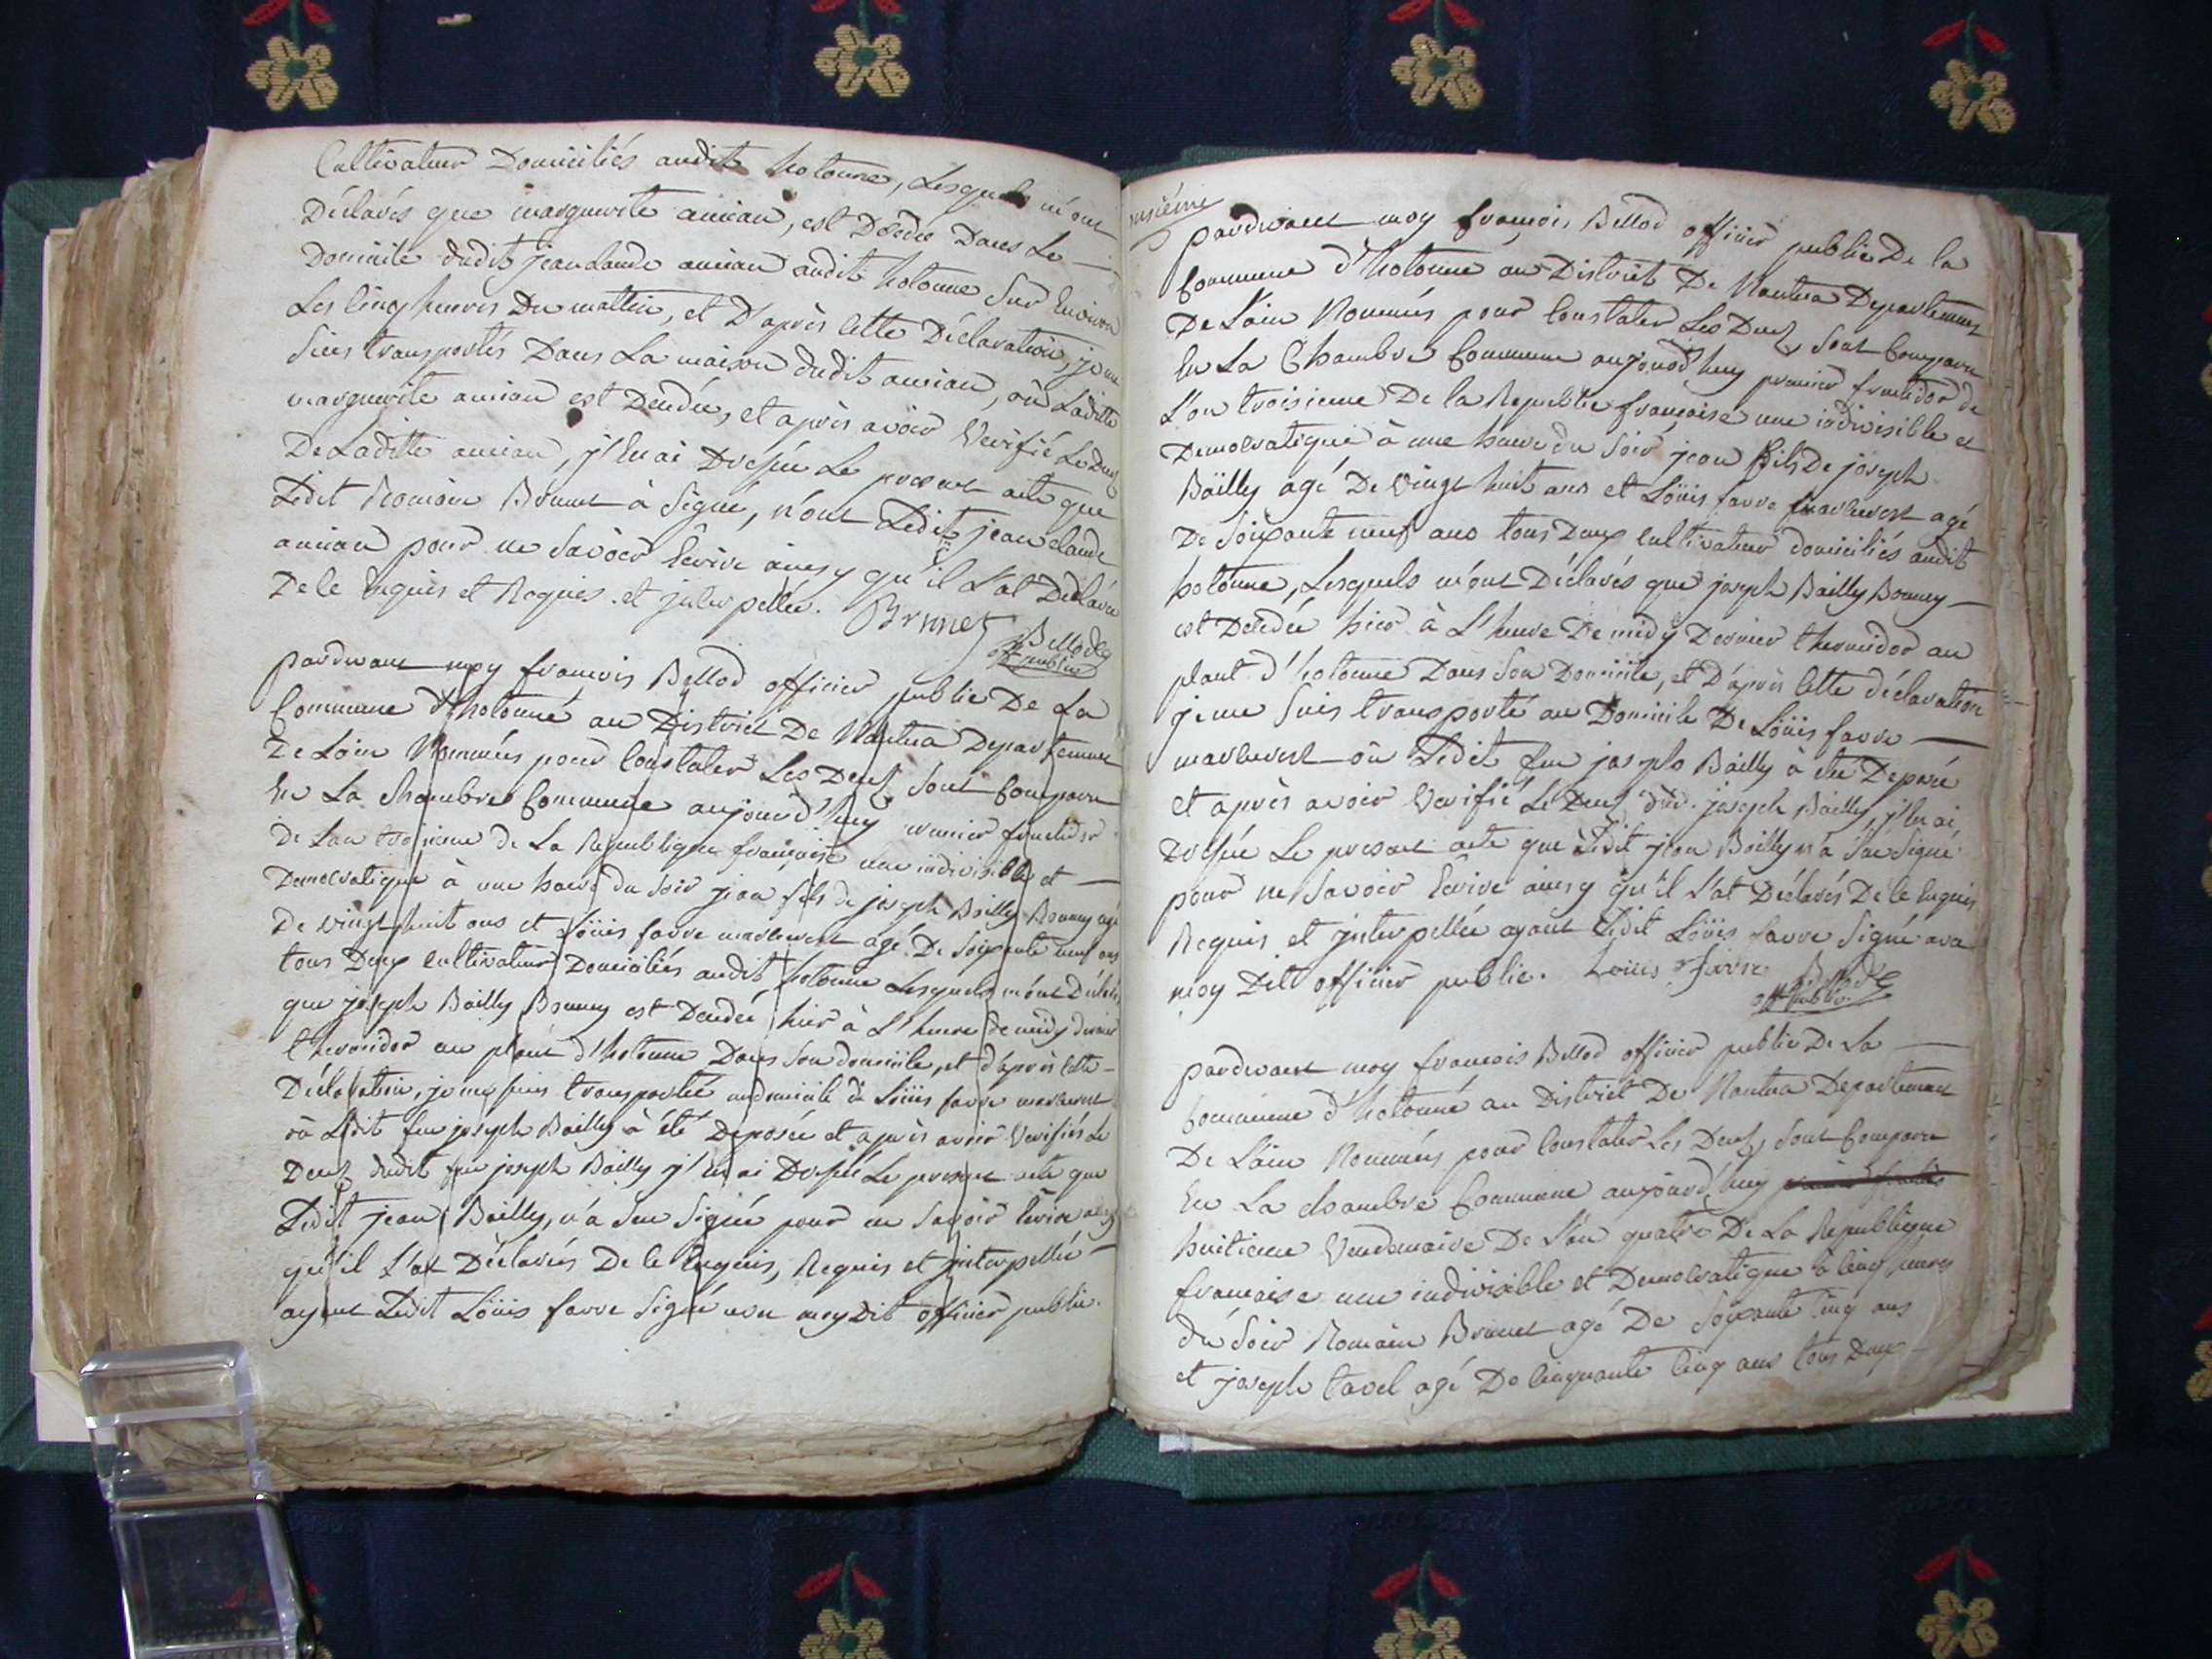 Cultivateur Domiciliés audit hotonne, Lesquels m'ont
Déclarés que marguerite ancian, est Décédée Dans Le
Domicile dudit jean Claude ancian audit hotonne Sur Environ
Les Cinq heures Du mattin, et D'après Cette Déclaration, je me
Suis transportés Dans La maison dudit ancian, où Laditte
marguerite ancian est Décédée, et après avoir Verifié Le Decez
De Laditte ancian, j'En ai Dressée Le present acte que
Ledit Romain Brunet à Signé, n'ont Ledit jean Claude
ancian pour ne Savoir Ecrire ainsy qu'il L'at Déclarée
De Ce Enquis et Requis et interpellée. Brunet
Bellod
off. public
pardevant moy francois Bellod officier public De La
Commune d'hotonne au District De Nantua Departement
De Lain Nommés pour Constater Les Decez, Sont Comparu
En La Chambre Commune aujourd'huy premier fructidor
de Lan troisieme de La Republique françoise une indivisible et
Democratique à une heure du Soir jean fils de joseph Bailly Bonney agé
De vingt huit ans et Löüis favre agé De Soixante neuf ans
tous Deux Cultivateur Domiciliés audit hotonne Lesquels m'ont Déclarés
que joseph Bailly Bonney est Décédée hier à L'heure De midy dernier
thermidor au plant d'hotonne Dans Son domicile, et d'après Cette
Déclaration, je me suis transportée au domicile de Löüis favre
où Ledit feu joseph Bailly à été Deposée et après avoir Verifiés Le
Decez dudit feu joseph Bailly j'En ai Dressé Le present acte que
Ledit jean Bailly, n'a Seu Signé pour ne Savoir Ecrire ainsy
qu'il L'at Déclarés De Ce Enquis, Requis et interpellée
ayant Ledit Löüis favre Signé avec moy Dit officier public.
pardevant moy francois Bellod officier public De la
Commune d'hotonne au District De Nantua Departement
De Lain Nommés pour Constater Les Decez, Sont Comparu
En La Chambre Commune aujourd'huy premier fructidor de
L'an troisieme De la Republic françoise une indivisible et
Democratique à une heure du Soir jean fils De joseph
Bailly agé De Vingt huit ans et Löüis favre agé
De Soixante neuf ans tous Deux Cultivateur domiciliés audit
hotonne, Lesquels m'ont Déclarés que joseph Bailly Bonney
est Décédée hier à L'heure De midy Dernier thermidor au
plant d'hotonne Dans Son Domicile, et D'après Cette déclaration
je me Suis transporté au Domicile De Löüis favre
où Ledit feu joseph Bailly à été Deposée
et après avoir Verifié Le Decez dud. joseph Bailly, j'En ai
Dressée Le present acte que Ledit jean Bailly n'a Seu Signé
pour ne Savoir Ecrire ainsy qu'il L'at Déclarés De Ce Enquis
Requis et interpellée ayant Ledit Löüis favre Signé avec
moy Dit officier public. Louis favre Bellod
off. public
pardevant moy francois Bellod officier public De La
Commune d'hotonne au District De Nantua Departement
De Lain Nommés pour Constater Les Decez, Sont Comparu
En La Chambre Commune aujourd'huy premier fructidor
huitieme Vendemaire De L'an quatre De La Republique
francaise une indivisible et Democratique à Cinq heures
du Soir Romain Brunet agé De Soixante Cinq ans
et joseph Cavel agé De Cinquante Cinq ans tous Deux